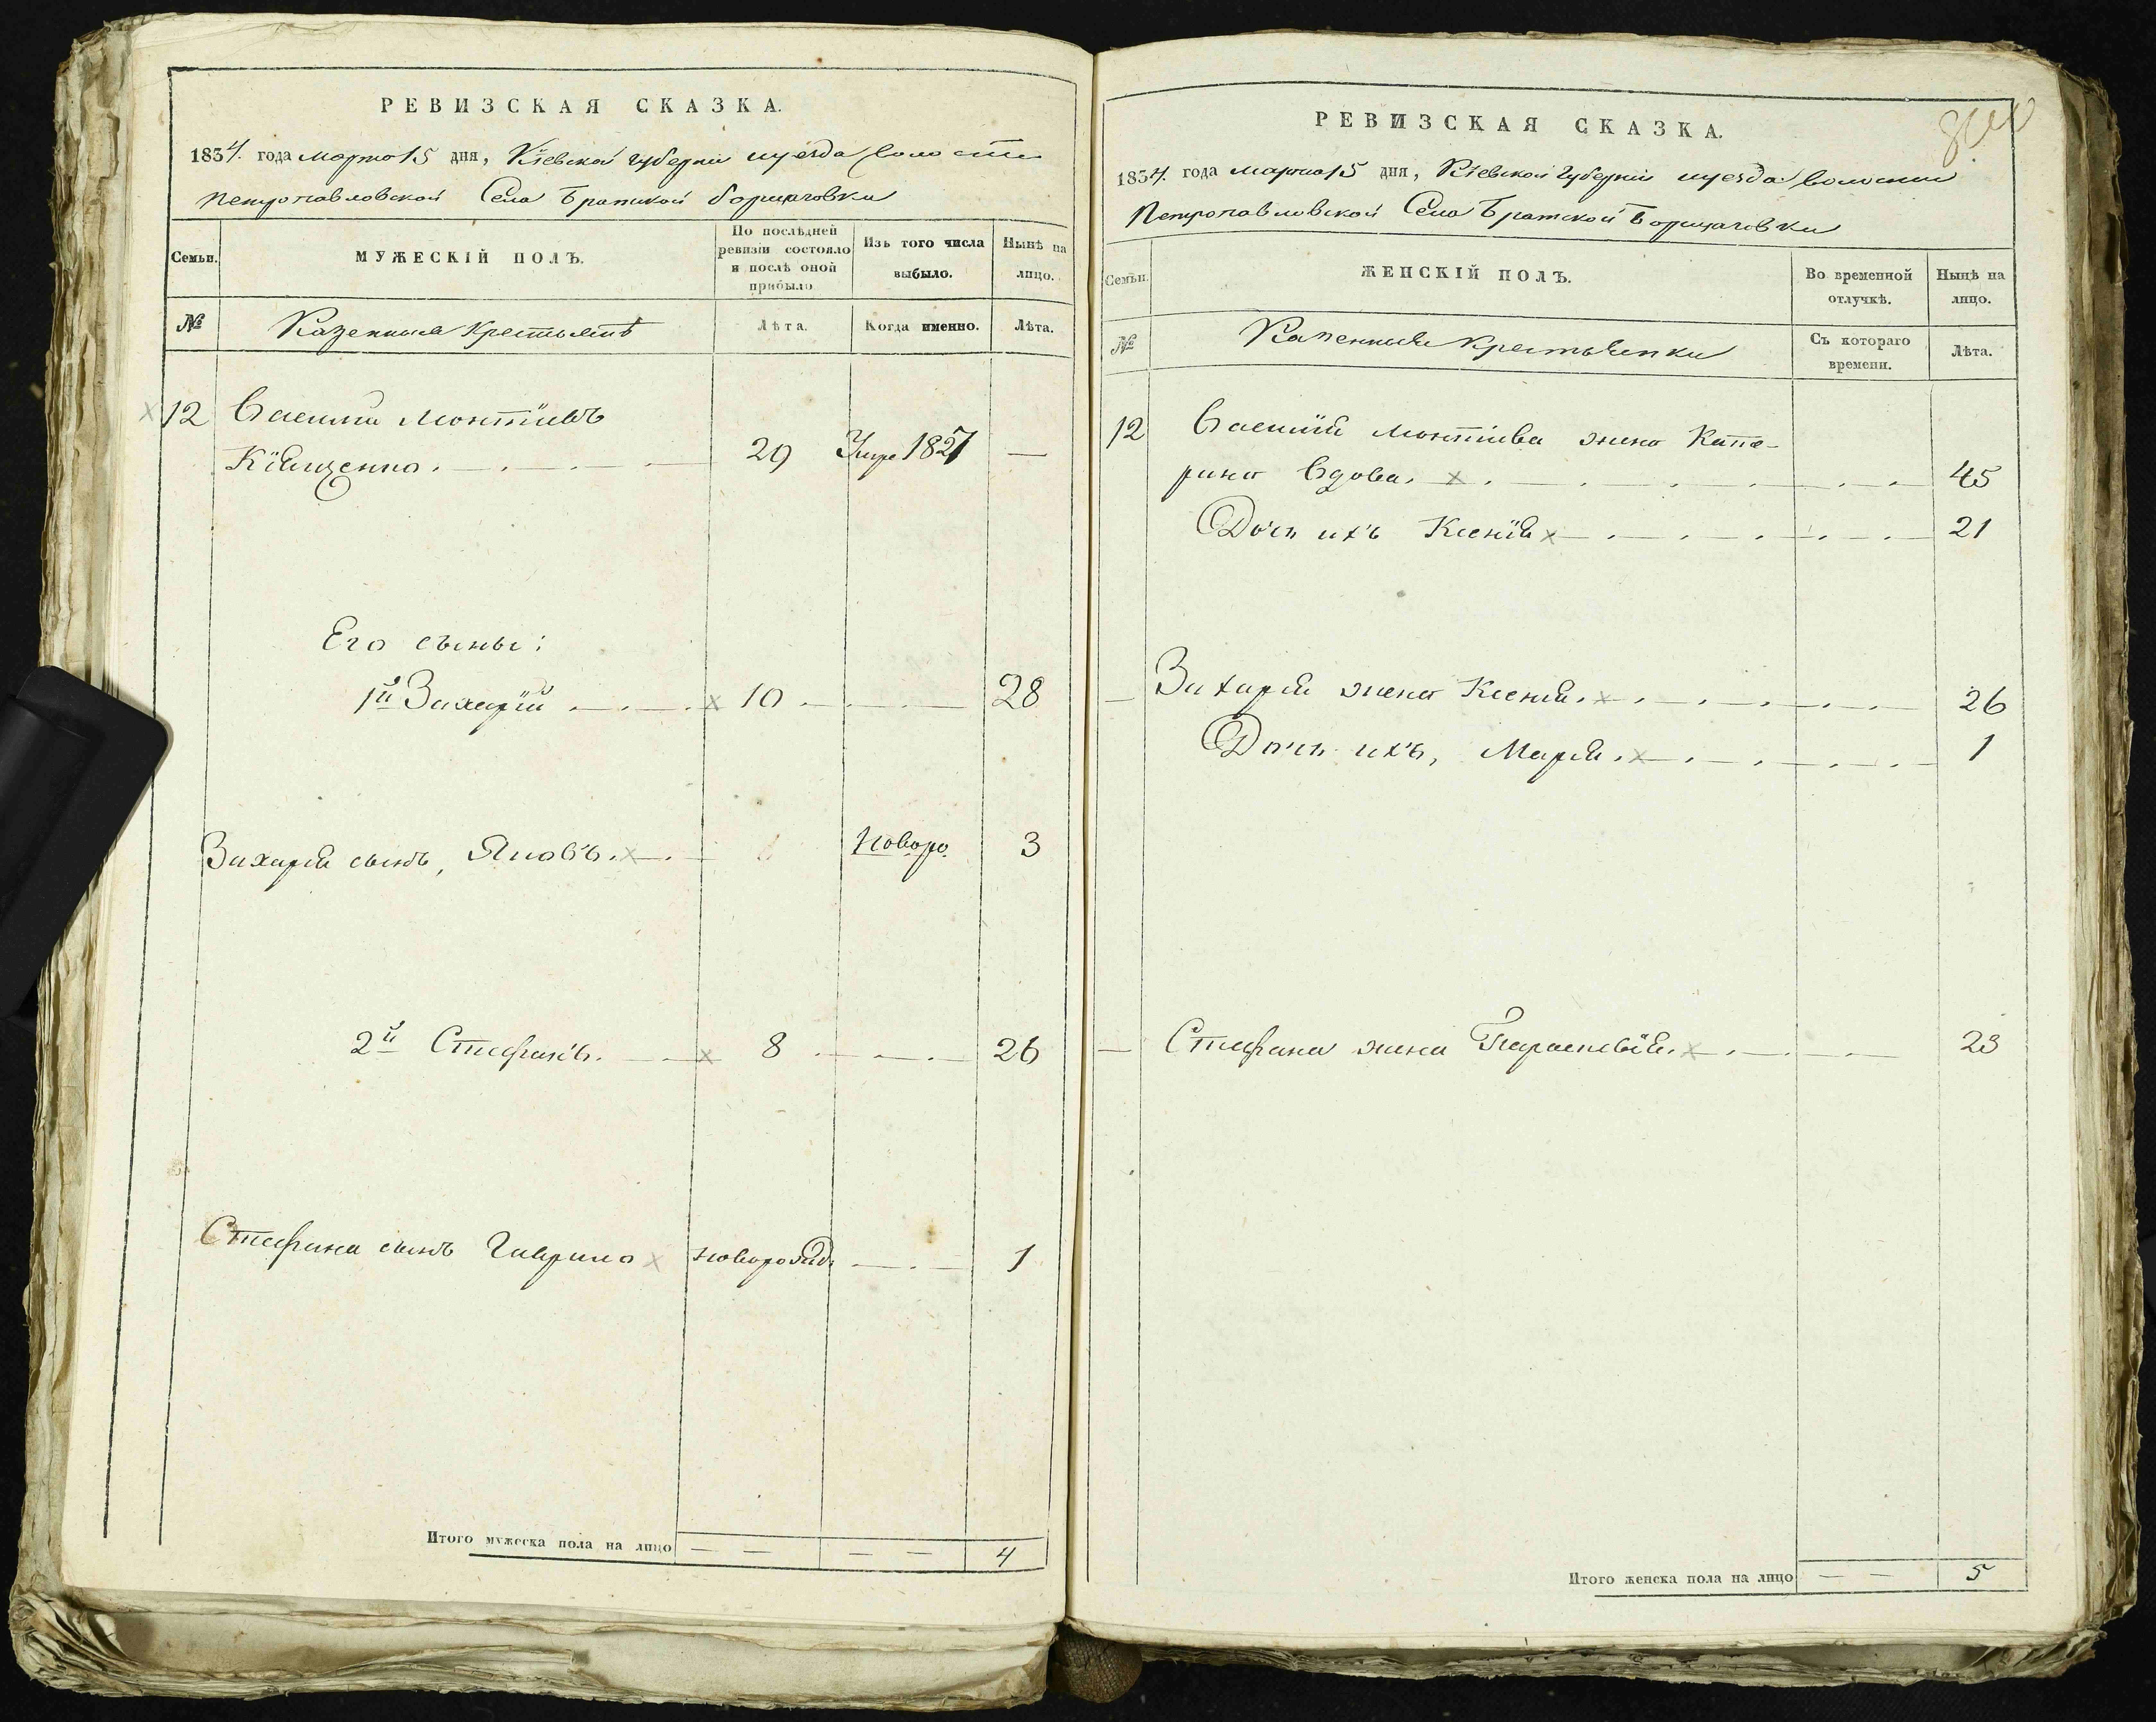 РЕВИЗСКАЯ СКАЗКА.
1834. года марта 15 дня, Кіевской губерніи и уезда волости
Петропавловской Села Братской Борщаговки
Семьи.
МУЖЕСКІЙ ПОЛЪ.
По послѣдней ревизіи состояло и послѣ оной прибыло
Изъ того числа выбыло.
Нынѣ на лицо.
№
Казенныя Крестьянѣ
Лѣта.
Когда именно.
Лѣта.
12 Василій
29 Умре 1827 —
Его сыны:
1й Захарій 10 28
Захарія сынъ, Яковъ. Новоро. 3
2й Стефанъ. 8 26
Стефана сынъ Гаврило новорожд. 1
Итого мужеска пола на лицо — — — — 4
РЕВИЗСКАЯ СКАЗКА.
1834. года марта 15 дня, Кіевской губерніи и уезда волости
Петропавловской Села Братской Борщаговки
Семьи.
ЖЕНСКІЙ ПОЛЪ.
Во временной отлучкѣ.
Нынѣ на лицо.
№
Казенныя Крестьянки
Съ котораго времени.
Лѣта.
12 Василія жена Кате-
рина Вдова. 45
Дочь ихъ Ксенія 21
— Захарія жена Ксенія. 26
Дочь ихъ, Марія. 1
— Стефана жена Параскевія. 23
Итого женска пола на лицо — — 5